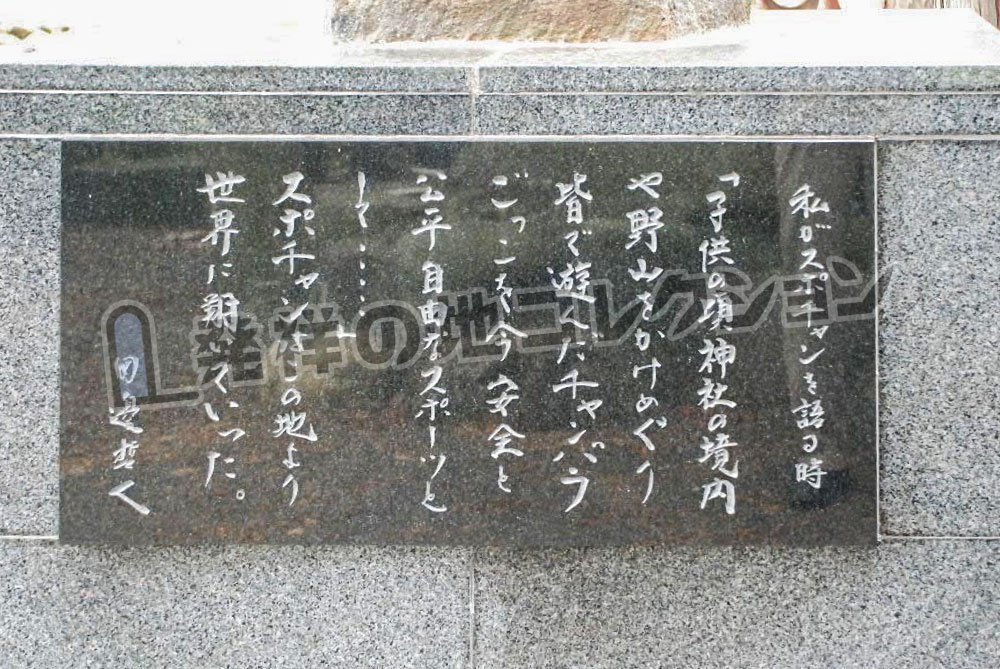 私がスポチャンを語る時
「子供の頃神社の境内
や野山をかけめぐり
皆で遊んだチャンバラ
ごっこを今安全と
公平自由なスポーツと
して・・・・・・」
スポチャンはこの地より
世界に翔いていった。
田邊哲人
発祥の地コレクション